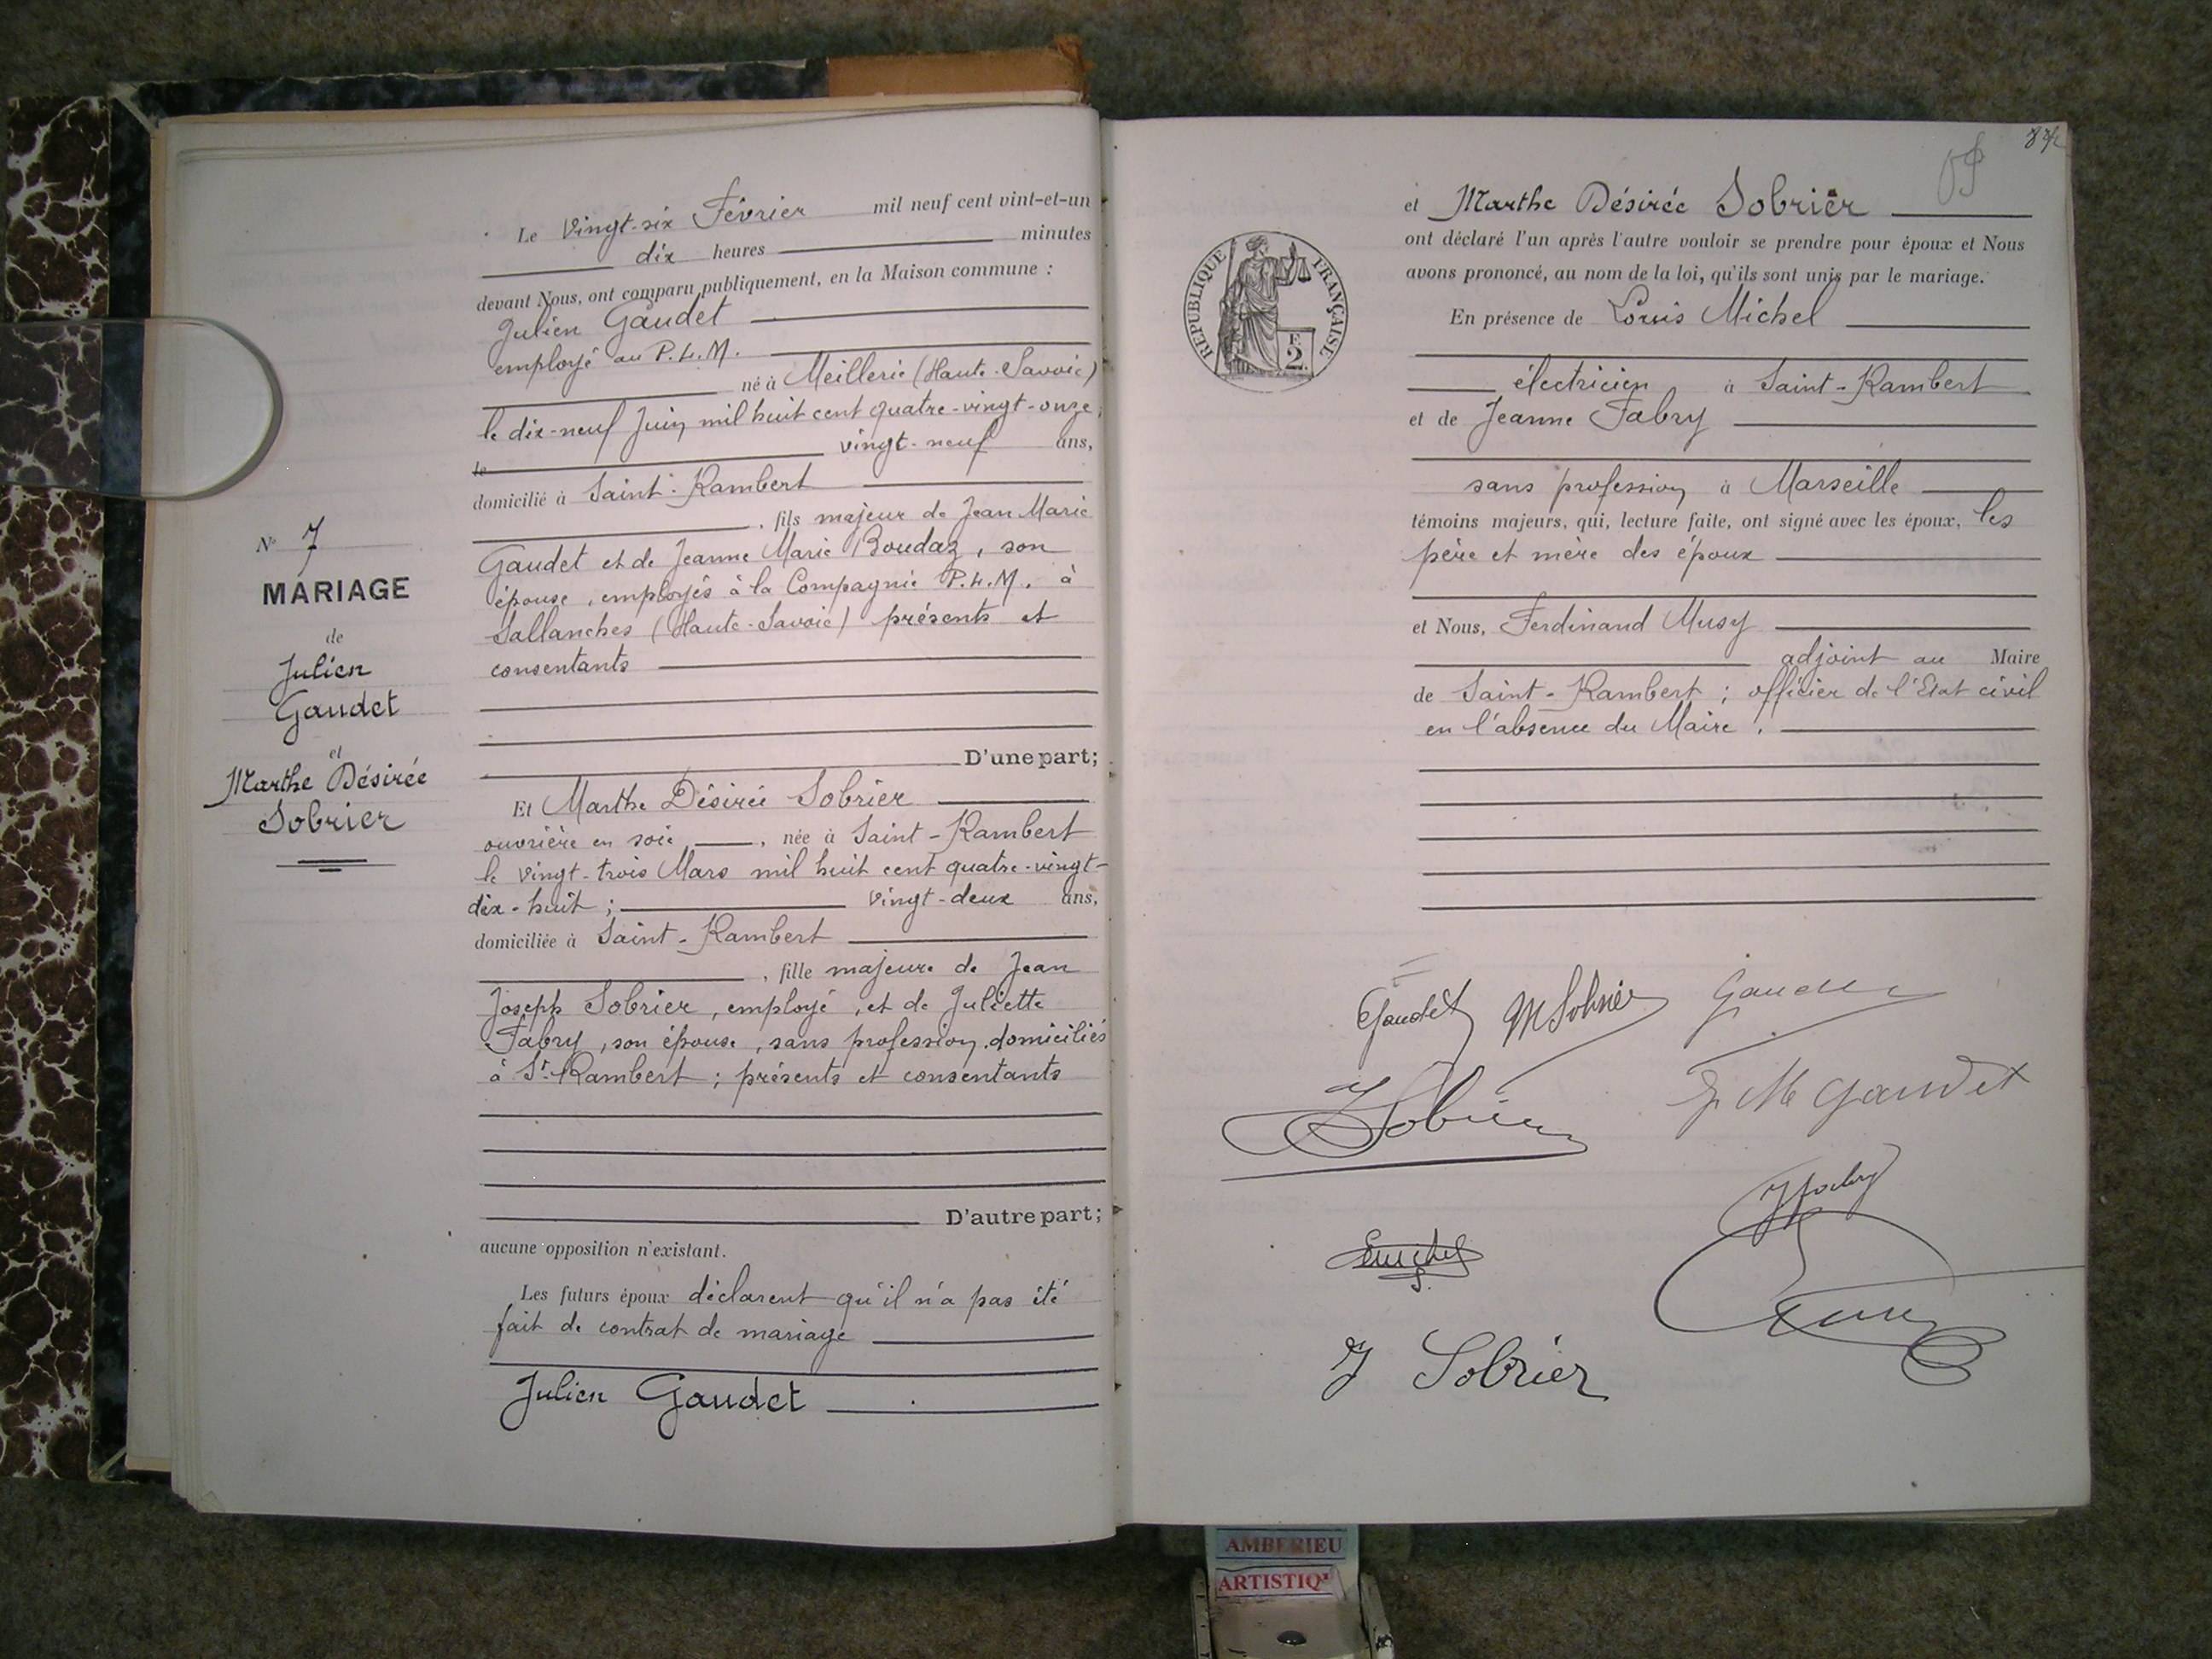 Le vingt-six Février mil neuf cent vint-et-un
dix heures minutes
devant Nous, ont comparu publiquement, en la Maison commune :
Julien Gaudet
employé au P.L.M.
né à Meillerie (Haute-Savoie)
le dix-neuf Juin mil huit cent quatre-vingt-onze,
le vingt-neuf ans,
domicilié à Saint-Rambert
, fils majeur de Jean Marie
Gaudet et de Jeanne Marie Boudaz, son
épouse, employés à la Compagnie P.L.M. à
Sallanches (Haute-Savoie) présents et
consentants
D'une part;
Et Marthe Désirée Sobrier
ouvrière en soie, née à Saint-Rambert
le vingt-trois Mars mil huit cent quatre-vingt-
dix-huit ; vingt-deux ans,
domiciliée à Saint-Rambert
, fille majeure de Jean
Joseph Sobrier, employé, et de Juliette
Fabry, son épouse, sans profession, domiciliés
à St-Rambert ; présents et consentants
D'autre part;
aucune opposition n'existant.
Les futurs époux déclarent qu'il n'a pas été
fait de contrat de mariage
Julien Gaudet
N° 7
MARIAGE
de
Julien
Gaudet
et
Marthe Désirée
Sobrier
et Marthe Désirée Sobrier
ont déclaré l'un après l'autre vouloir se prendre pour époux et Nous
avons prononcé, au nom de la loi, qu'ils sont unis par le mariage.
En présence de Louis Michel
électricien à Saint-Rambert
et de Jeanne Fabry
sans profession à Marseille
témoins majeurs, qui, lecture faite, ont signé avec les époux, les
père et mère des époux
et Nous, Ferdinand Musy
adjoint au Maire
de Saint-Rambert ; officier de l'Etat civil
en l'absence du Maire.
RÉPUBLIQUE FRANÇAISE
F.
2.
Gaudet M Sobrier Gaudet
J Sobrier J M Gaudet
J Fabry
J Sobrier
AMBERIEU
ARTISTIQ